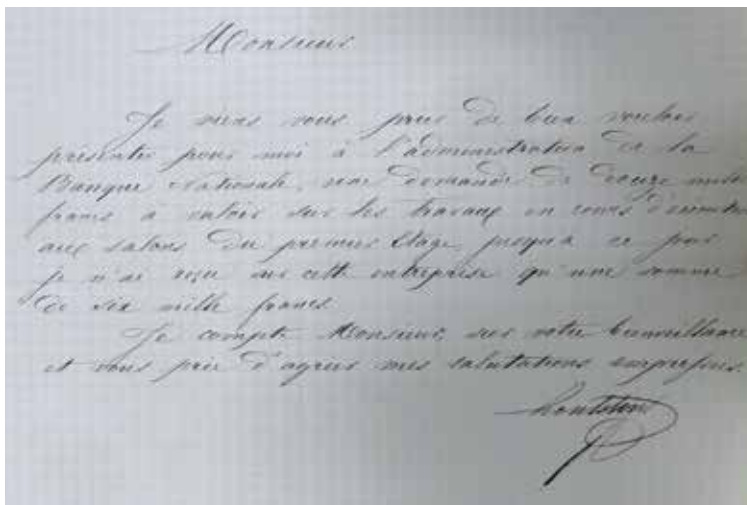 Monsieur
Je viens vous prier de bien vouloir
présenter pour moi à l'administration de la
Banque Nationale, une demande de douze mille
francs à valoir sur les travaux en cours d'exécution
aux salons du premier étage, jusqu'à ce jour
je n'ai reçu sur cette entreprise qu'une somme
de six mille francs
Je compte Monsieur, sur votre bienveillance
et vous prie d'agréer mes salutations empressées.